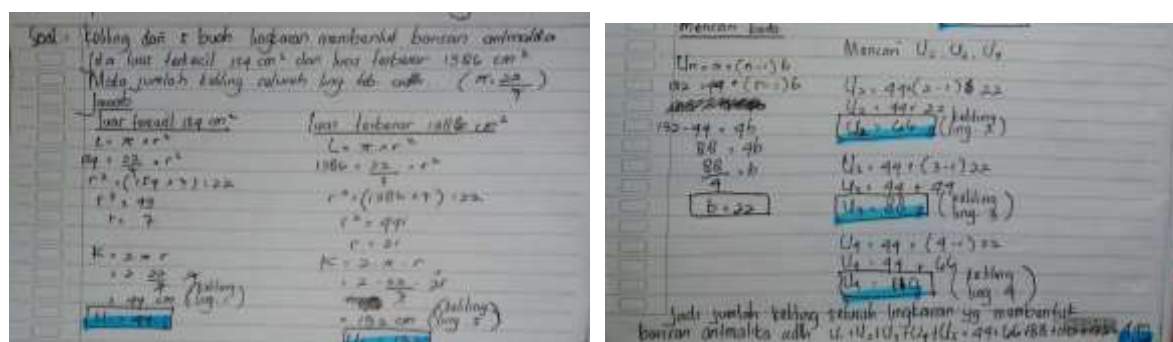 Soal : Keliling dari 5 buah lingkaran membentuk barisan aritmatika
luas terkecil 154 cm² dan luas terbesar 1386 cm²
Maka jumlah keliling seluruh ling tsb adlh (π = 22/7)
Jawab
luas terkecil 154 cm²
L = π × r²
154 = 22/7 × r²
r² = (154 × 7) : 22
r² = 49
r = 7
K = 2 π r
= 2 · 22/7 · 7
= 44 cm (keliling ling 1)
U₁ = 44
luas terbesar 1386 cm²
L = π × r²
1386 = 22/7 × r²
r² = (1386 × 7) : 22
r² = 441
r = 21
K = 2 · π · r
= 2 · 22/7 · 21
= 132 cm (keliling ling 5)
Mencari beda
Un = a + (n-1) b
132 = 44 + (5-1) b
132 - 44 = 4b
88 = 4b
88/4 = b
b = 22
Mencari U₂, U₃, U₄
U₂ = 44 + (2-1) 22
U₂ = 44 + 22
U₂ = 66 (keliling ling 2)
U₃ = 44 + (3-1) 22
U₃ = 44 + 44
U₃ = 88 (keliling ling 3)
U₄ = 44 + (4-1) 22
U₄ = 44 + 66
U₄ = 110 (keliling ling 4)
Jadi jumlah keliling seluruh lingkaran yg membentuk
barisan aritmatika adlh U₁+U₂+U₃+U₄+U₅ = 44+66+88+110+132 = 440